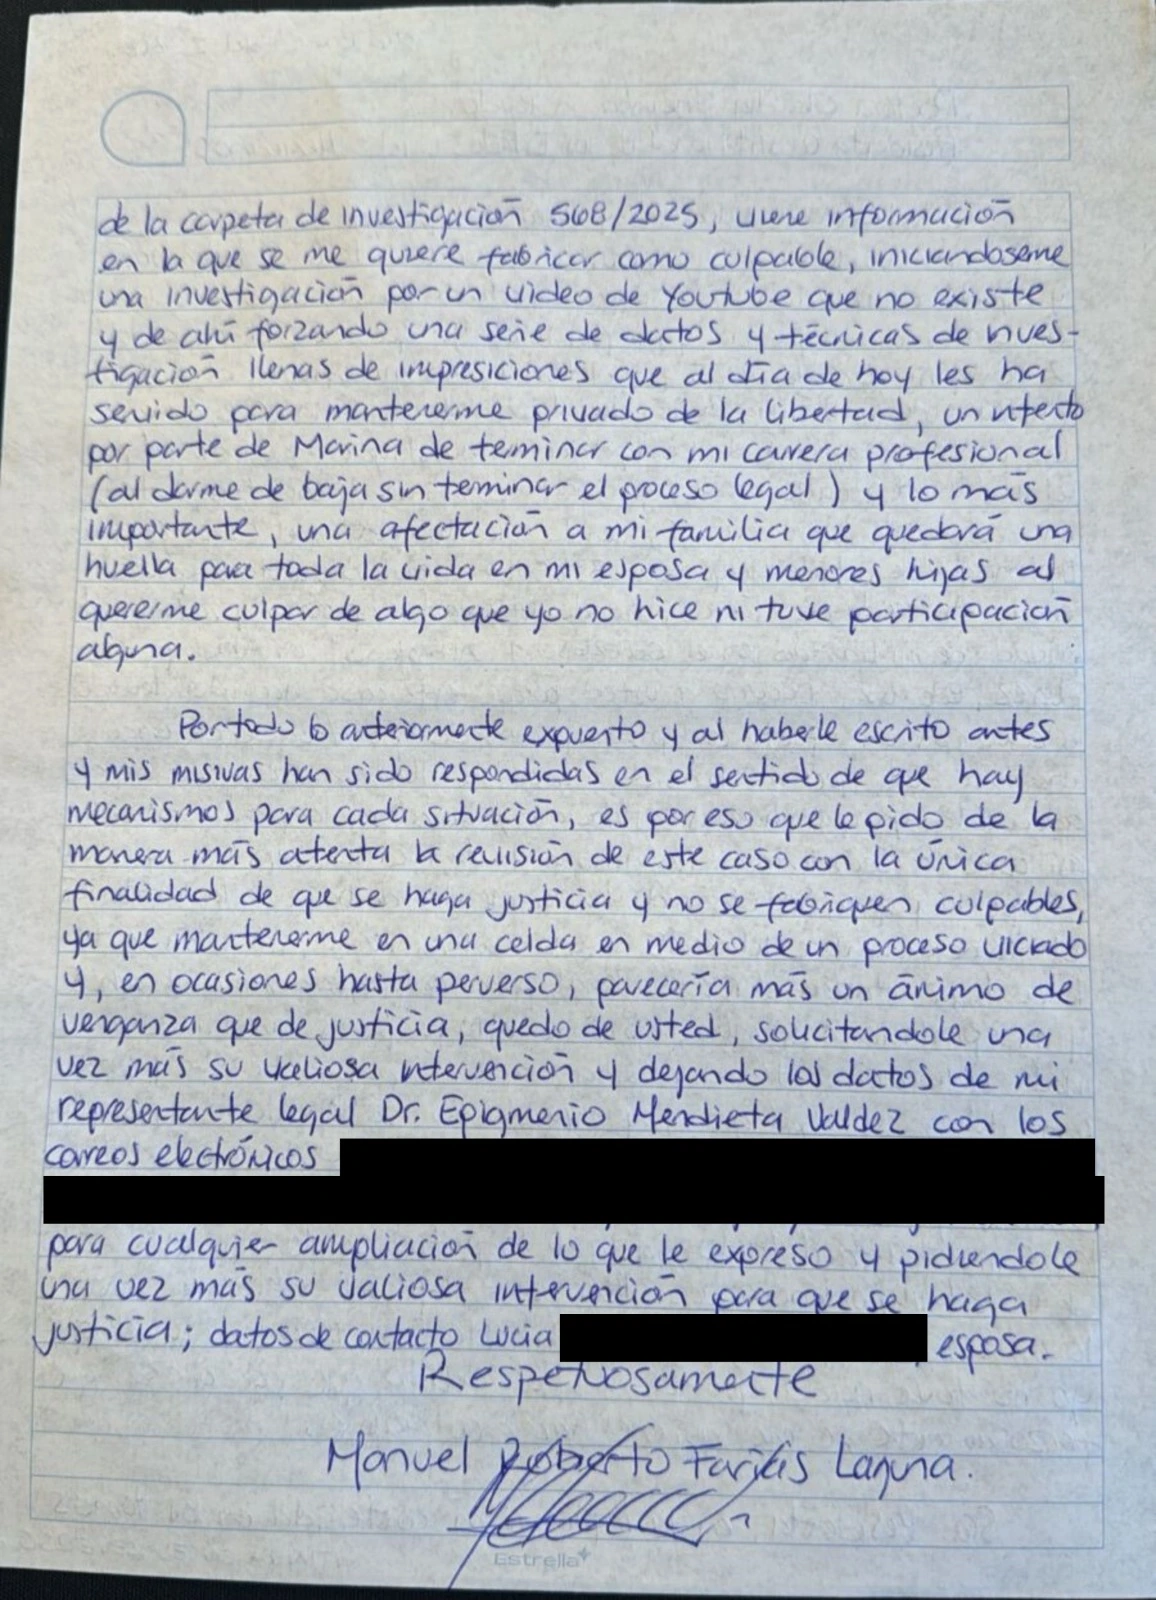 de la carpeta de investigación 568/2025, viene información
en la que se me quiere fabricar como culpable, iniciandoseme
una investigación por un video de Youtube que no existe
y de ahí forzando una serie de datos y técnicas de inves-
tigación llenas de impresiciones que al día de hoy les ha
servido para mantenerme privado de la libertad, un intento
por parte de Marina de terminar con mi carrera profesional
(al darme de baja sin terminar el proceso legal) y lo más
importante, una afectación a mi familia que quedará una
huella para toda la vida en mi esposa y menores hijas al
quererme culpar de algo que yo no hice ni tuve participación
alguna.
Por todo lo anteriormente expuesto y al haberle escrito antes
y mis misivas han sido respondidas en el sentido de que hay
mecanismos para cada situación, es por eso que le pido de la
manera más atenta la revisión de este caso con la única
finalidad de que se haga justicia y no se fabriquen culpables,
ya que mantenerme en una celda en medio de un proceso viciado
y, en ocasiones hasta perverso, parecería más un ánimo de
venganza que de justicia, quedo de usted, solicitandole una
vez más su valiosa intervención y dejando los datos de mi
representante legal Dr. Epigmenio Mendieta Valdez con los
correos electrónicos
para cualquier ampliación de lo que le expreso y pidiendole
una vez más su valiosa intervención para que se haga
justicia; datos de contacto Lucia esposa.
Respetuosamente
Manuel Roberto Farías Laguna.
Estrella